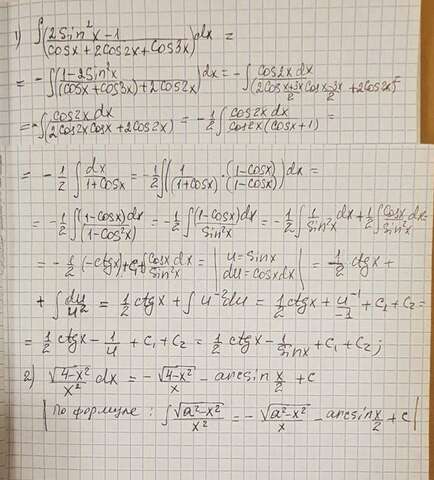 1) ∫(2Sin²x-1)/(cosx+2cos2x+cos3x) dx =
= -∫(1-2Sin²x)/((cosx+cos3x)+2cos2x) dx = -∫cos2x dx/(2cos (x+3x)/2 cos (x-3x)/2 + 2cos2x) =
= -∫cos2x dx/(2cos2x cosx+2cos2x) = -1/2 ∫cos2x dx/(cos2x(cosx+1)) =
= -1/2 ∫dx/(1+cosx) = -1/2 ∫(1/(1+cosx) · (1-cosx)/(1-cosx))dx =
= -1/2 ∫(1-cosx)dx/(1-cos²x) = -1/2 ∫(1-cosx)dx/Sin²x = -1/2 ∫1/Sin²x dx + 1/2 ∫cosx/Sin²x dx =
= -1/2 (-ctgx)+c₁+∫cosx dx/Sin²x = |u=sinx du=cosxdx| = 1/2 ctgx+
+ ∫du/u² = 1/2 ctgx + ∫u⁻²du = 1/2 ctgx + u⁻¹/-1 + c₁+c₂ =
= 1/2 ctgx - 1/u + c₁+c₂ = 1/2 ctgx - 1/sinx + c₁+c₂;
2) √(4-x²)/x² dx = -√(4-x²)/x - arcsin x/2 + c
|по формуле: ∫√(a²-x²)/x² = -√(a²-x²)/x - arcsin x/2 + c|